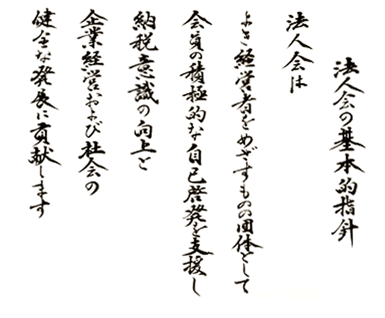 法人会の基本的指針
法人会は
よき経営者をめざすものの団体として
会員の積極的な自己啓発を支援し
納税意識の向上と
企業経営および社会の
健全な発展に貢献します